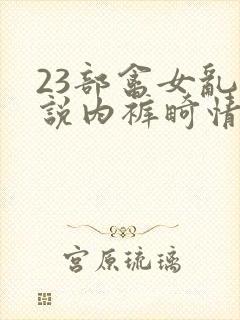 23部畲女乱
説内裤畸情
宫原琉璃